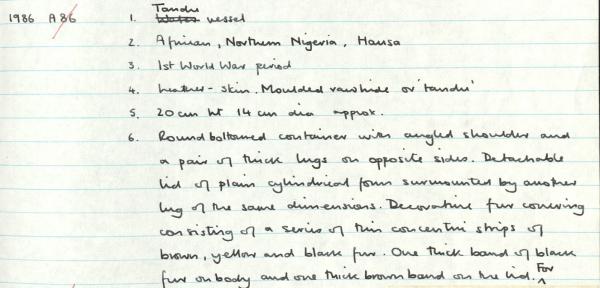 Tandu
1986 A86 1. Water vessel
2. African, Northern Nigeria, Hausa
3. 1st World War period
4. Leather - skin. Moulded rawhide or 'tandu'
5. 20 cm ht 14 cm dia approx.
6. Round bottomed container with angled shoulder and
a pair of thick lugs on opposite sides. Detachable
lid of plain cylindrical form surmounted by another
lug of the same dimensions. Decorative fur covering
consisting of a series of thin concentric strips of
brown, yellow and black fur. One thick band of black
fur on body and one thick brown band on the lid. For